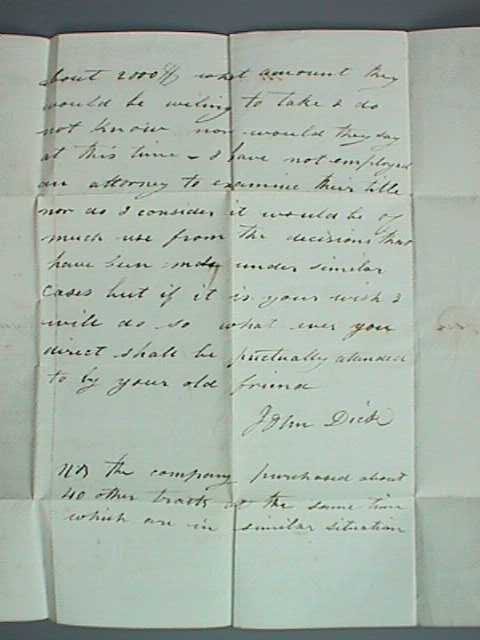 about 2000$ what amount they
would be wiling to take I do
not know nor would they say
at this time – I have not employed
an attorney to examine their title
nor do I consider it would be of
much use from the decisions that
have been made under similar
cases but if it is your wish I
will do so what ever you
direct shall be puctually attended
to by your old friend
John Dick
NB the company purchased about
40 other tracts at the same time
which are in similar situation